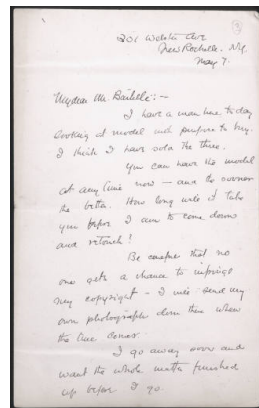 301 Webster Ave
New Rochelle. N.Y.
May 7.
My dear Mr. :—
I have a man here to day
looking at model with purpose to buy.
I think I have sold the three.
You can have the model
at any time now — and the sooner
the better. How long will it take
you before I am to come down
and retouch!
Be careful that no
one gets a chance to infringe
my copyright — I will send my
own photographer down there when
the time comes
I go away soon and
want the whole matter finished
up before I go